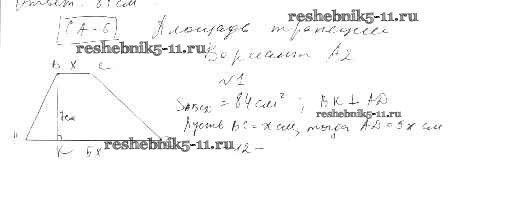 Ответ: 81 см
reshebnik5-11.ru
СА-6 Площадь трапеции
reshebnik5-11.ru
Вариант А2
№1
B X C
S = 84 см² ; BK ⊥ AD
7см
reshebnik5-11.ru
Пусть BC = x см, тогда AD = 5x см
K 5x
reshebnik5-11.ru